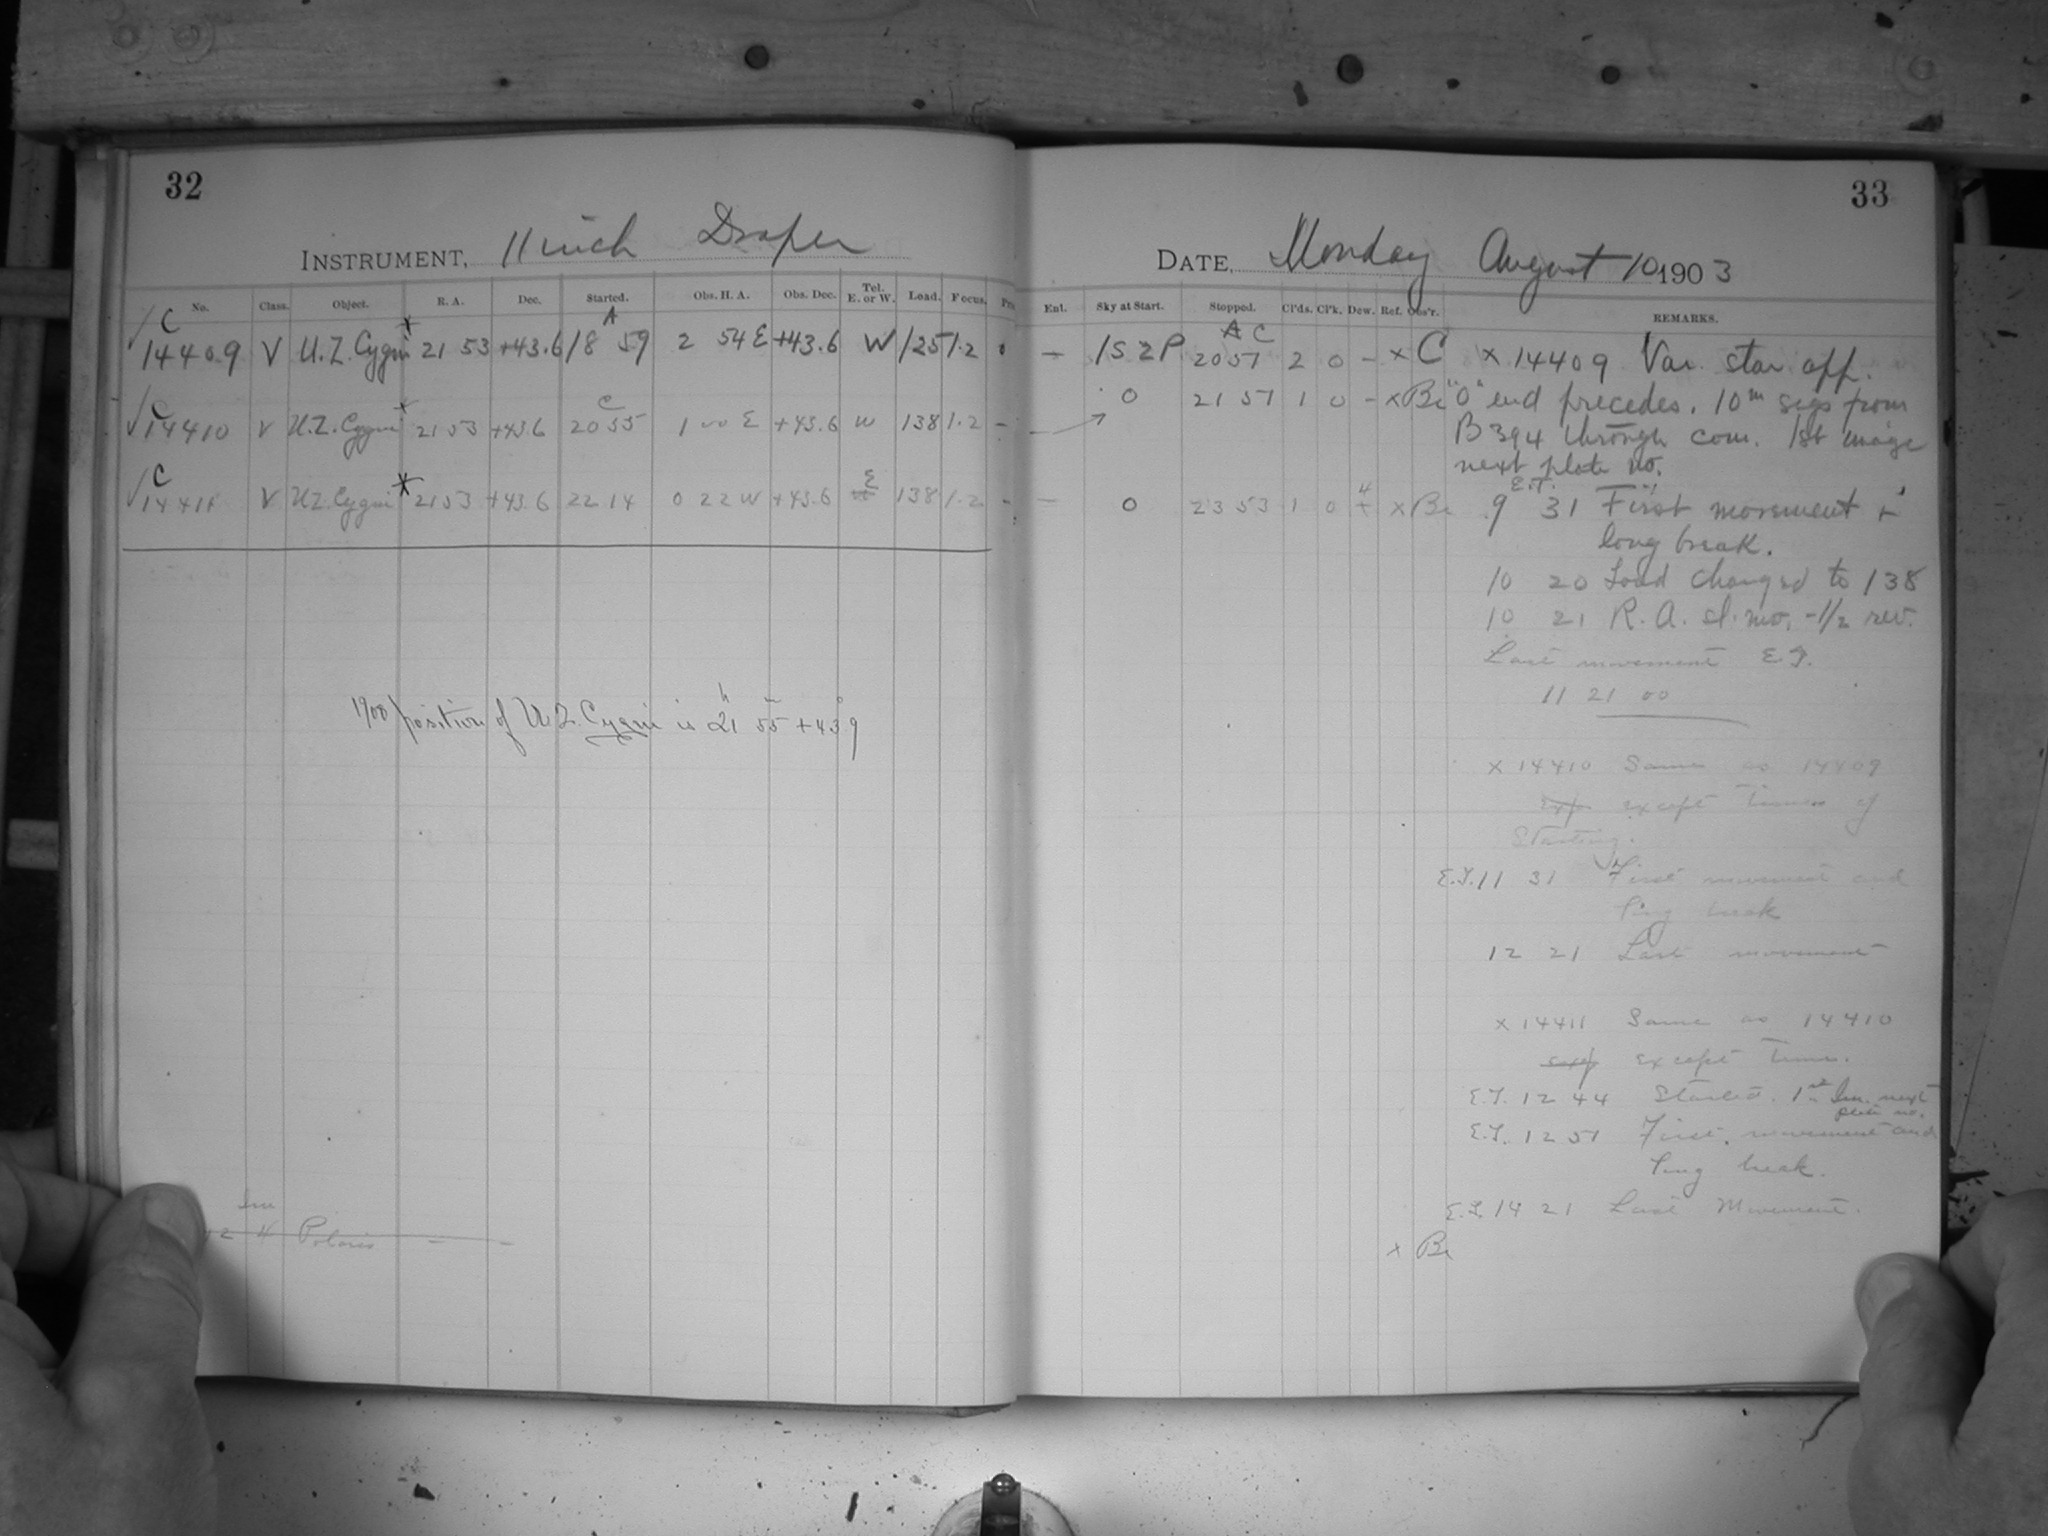 32
INSTRUMENT, 11 inch Draper
No. Class. Object. R. A. Dec. Started. Obs. H. A. Obs. Dec. Tel. E. or W. Load. Focus.
C A
14409 V U.Z. Cygni 21 53 +43.6 18 59 2 54 E +43.6 W 125 1.2
C C
14410 V U.Z. Cygni 21 53 +43.6 20 55 1 00 E +43.6 W 138 1.2 -
C
14411 V U.Z. Cygni 21 53 +43.6 22 14 0 22 W +43.6 E 138 1.2 -
1900 position of U.Z. Cygni is 21h 55m +43°9
Polaris - -
33
DATE, Monday August 10 1903
Ent. Sky at Start. Stopped. Cl'ds. Cl'k. Dew. Ref. Obs'r. REMARKS.
A C
- 1S2P 20 57 2 0 - x C x 14409 Var. star app.
0 21 57 1 0 - x Be "O" end precedes. 10m segs from
B 394 through com. 1st image
next plate no.
E.T.
- 0 23 53 1 0 4 x Be 9 31 First movement +
long break.
10 20 Load changed to 138
10 21 R. A. sl. mo. -1/2 rev.
Last movement E.T.
11 21 00
x 14410 Same as 14409
except times of
Starting.
E.T. 11 31 First movement and
long break
12 21 Last movement
x 14411 Same as 14410
except time.
E.T. 12 44 Started. 1st Im. next
plate no.
E.T. 12 51 First movement and
long break.
E.T. 14 21 Last Movement.
x Be